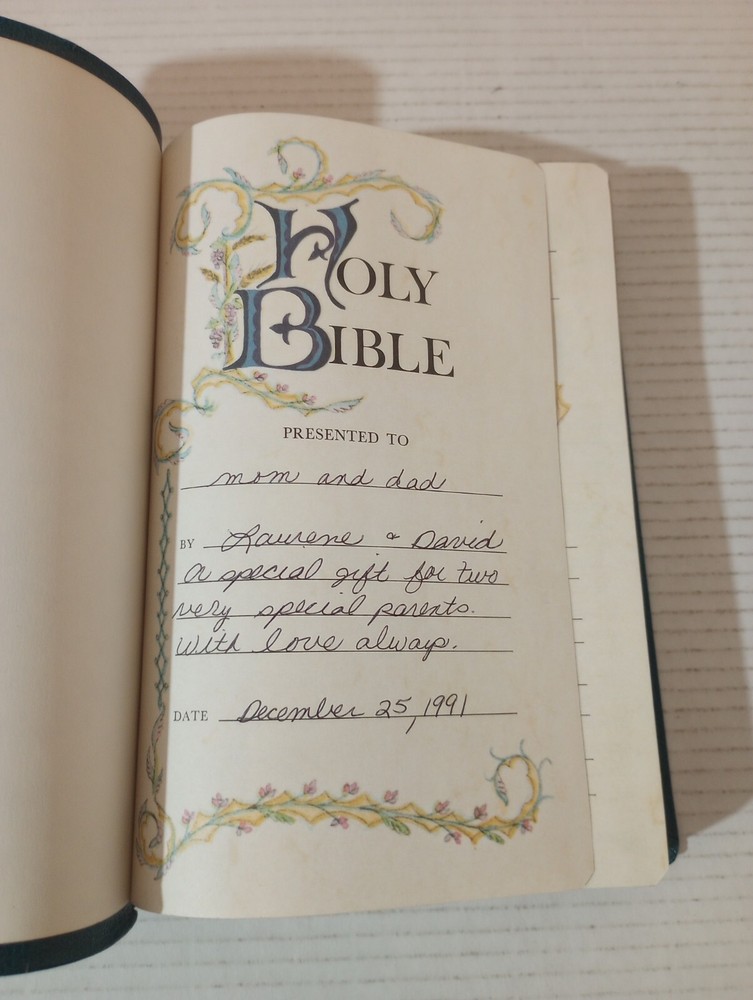 HOLY
BIBLE
PRESENTED TO
mom and dad
BY Laurene & David
a special gift for two
very special parents.
With love always.
DATE December 25, 1991